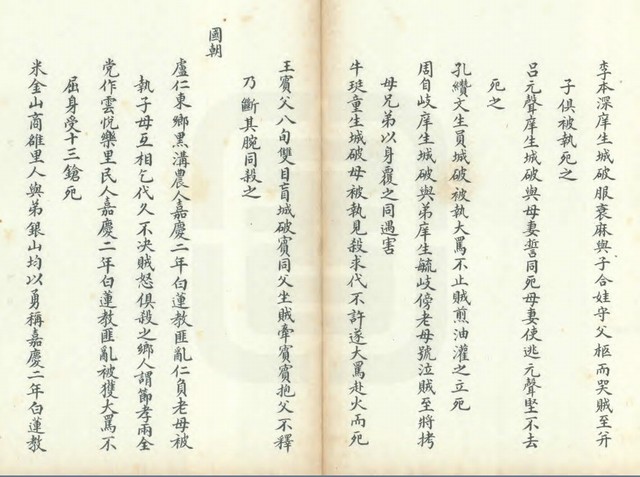 李本深庠生城破服衰麻與子合娃守父柩而哭賊至并
子俱被執死之
呂元聲庠生城破與母妻誓同死母妻使逃元聲堅不去
死之
孔纘文生員城破被執大罵不止賊煎油灌之立死
周自岐庠生城破與弟庠生毓岐傍老母號泣賊至將拷
母兄弟以身覆之同遇害
牛珽童生城破母被執見殺求代不許遂大罵赴火而死
王賓父八旬雙目盲城破賓同父坐賊牽賓賓抱父不釋
乃斷其腕同殺之
國朝
盧仁東鄉黑溝農人嘉慶二年白蓮教匪亂仁負老母被
執子母互相乞代久不決賊怒俱殺之鄉人謂節孝兩全
党作雲悅樂里民人嘉慶二年白蓮教匪亂被獲大罵不
屈身受十三鎗死
米金山商雒里人與弟銀山均以勇稱嘉慶二年白蓮教